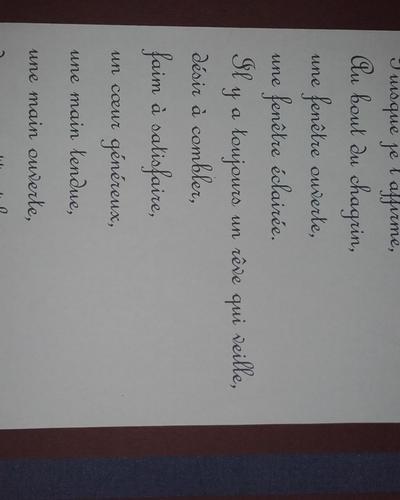 Puisque je l'affirme,
Au bout du chagrin,
une fenêtre ouverte,
une fenêtre éclairée.
Il y a toujours un rêve qui veille,
désir à combler,
faim à satisfaire,
un cœur généreux,
une main tendue,
une main ouverte,